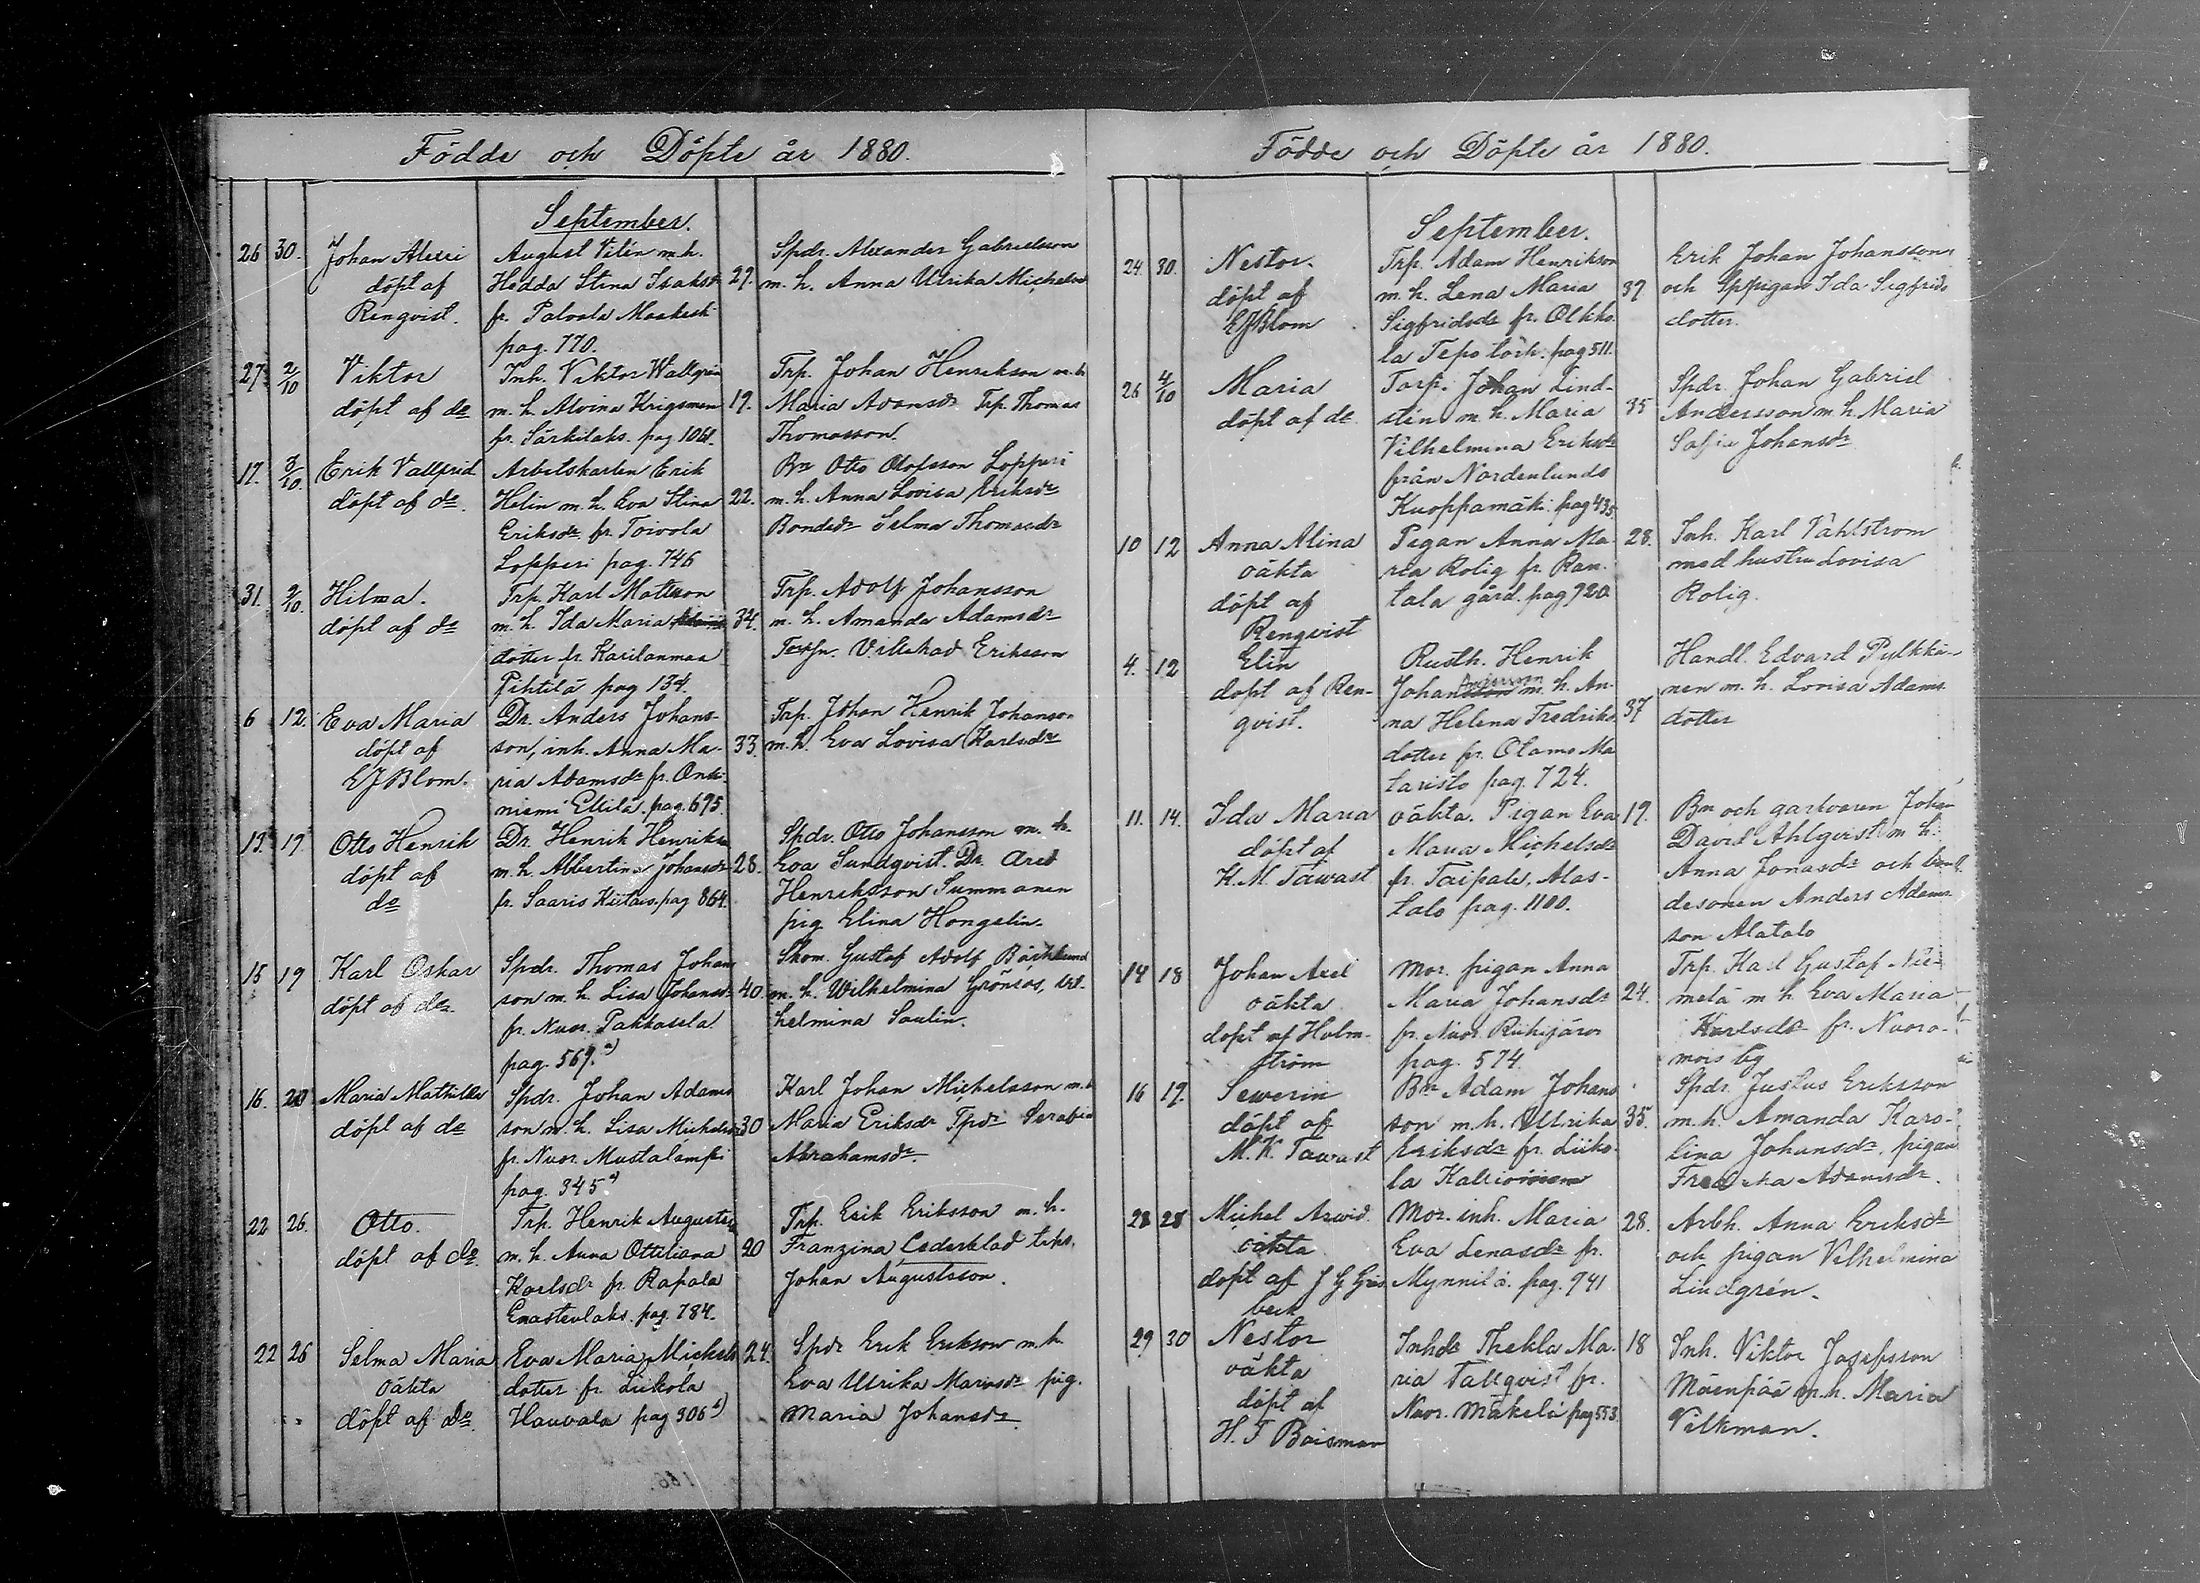 Födde och Döpte år 1880.
September.
26 30. Johan Alexi
döpt af
Renqvist.
August Vilén m.h.
Hedda Stina Isaksdr
fr. Palvala Maakeski
pag. 770.
27.
Spdr. Alexander Gabrielsson
m. h. Anna Ulrika Michelsdr
27 2/10 Viktor
döpt af do
Inh. Viktor Wallgrén
m. h. Alvina Krigsman
fr. Särkilaks. pag 1061.
19.
Trp. Johan Henrikson m.h.
Maria Adamsdr Trp. Thomas
Thomasson.
17. 3/10. Erik Vallfrid
döpt af do.
Arbetskarlen Erik
Helin m. h. Eva Stina
Eriksdr fr. Toivola
Lopperi pag. 746
22.
Bn Otto Olofsson Lopperi
m. h. Anna Lovisa Eriksdr
Bondedr Selma Thomasdr
31. 9/10. Hilma.
döpt af do
Trp. Karl Mattsson
m. h. Ida Maria
dotter fr. Karilanmaa
Pihtilä pag 134.
34.
Trp. Adolf Johansson
m. h. Amanda Adamsdr
Torpn. Vilehad Eriksson
6 12. Eva Maria
döpt af
EJBlom.
Dr. Anders Johans-
son, inh. Anna Ma-
ria Adamsdr fr. Onki-
niemi Ellilä. pag. 695.
33.
Trp. Johan Henrik Johanson
m.h. Eva Lovisa Karlsdr
13. 17. Otto Henrik
döpt af
do
Dr. Henrik Henriksn
m.h. Albertina Johansdr
fr. Saaris Kiitais. pag 864.
28.
Spdr. Otto Johansson m. h.
Eva Sundqvist. Dr. Ared
Henriksson Summanen
pig. Elina Hongelin.
15 19 Karl Oskar
döpt af do.
Spdr. Thomas Johans
son m. h. Lisa Johansdr
fr. Nuor. Pakkasela
pag. 567. a)
40.
Skom. Gustaf Adolf Bäcklund
m. h. Wilhelmina Grönros, Vil-
helmina Saulin.
16. 20 Maria Mathilda
döpt af do
Spdr. Johan Adams
son m. h. Lisa Michelsdr
fr. Nuor. Mustalampi
pag. 345 a)
30
Karl Johan Michelsson m.h.
Maria Eriksdr Spdr Serafia
Abrahamsdr.
22 26. Otto.
döpt af do.
Trp. Henrik Augustsn
m. h. Anna Ottiliana
Karlsdr fr. Rapala
Enastenlaks. pag. 784.
20
Trp. Erik Eriksson m. h.
Franzina Cederblad
Johan Augustsson.
22 26 Selma Maria
oäkta
döpt af do.
Eva Maria Michels
dotter fr. Liikola
Hauvala pag 306 b)
24.
Spdr Erik Erikson m.h.
Eva Ulrika Mariasdr pig.
Maria Johansdr
Födde och Döpte år 1880.
September.
24. 30. Nestor.
döpt af
EJBlom
Trp. Adam Henrikson
m. h. Lena Maria
Sigfridsdr fr. Olkko-
la Tepo Lörh. pag 511.
37.
Erik Johan Johansson
och Sppigan Ida Sigfrids
dotter.
26 4/10 Maria
döpt af do
Torp. Johan Lind-
stén m. h. Maria
Vilhelmina Eriksdr
från Nordenlunds
Kuoppamäki pag 435.
35
Spdr. Johan Gabriel
Andersson m. h. Maria
Sofia Johansdr
10 12 Anna Alina
oäkta
döpt af
Renqvist
Pigan Anna Ma-
ria Rolig fr. Ran-
tala gård. pag 920.
28.
Inh. Karl Vahlström
med hustru Lovisa
Rolig.
4. 12 Elin
döpt af Ren-
qvist.
Rusth. Henrik
Johan Andersson m. h. An-
na Helena Fredriks
dotter fr. Olamo Ma
taristo pag. 724.
37
Handl. Edvard Pylkkä-
nen m. h. Lovisa Adams
dotter
11. 14. Ida Maria
döpt af
K. M. Tawast
oäkta. Pigan Eva
Maria Michelsdr
fr. Taipale, Alas-
talo pag. 1100.
19.
Bn och garfvaren Johan
David Ahlqvist m h.
Anna Jonasdr och bon-
desonen Anders Adams-
son Alatalo
14 18 Johan Axel
oäkta
döpt af Holm-
ström
Mor. pigan Anna
Maria Johansdr
fr. Nuor. Riihijärvi
pag. 574.
24.
Trp. Karl Gustaf Nie-
melä m h. Eva Maria
Karlsdr fr. Nuora-
mois by
16 19. Sewerin
döpt af
M. K. Tawast
Bn Adam Johans
son m. h. Ulrika
Eriksdr fr. Liiko-
la
35.
Spdr. Justus Eriksson
m. h. Amanda Karo-
lina Johansdr, pigan
Fredrika Adamsdr.
28 28 Michel Arwid.
oäkta
döpt af J G Grås
beck
Mor. inh. Maria
Eva Lenasdr fr.
Mynnilä. pag. 941
28.
Arbh. Anna Eriksdr
och pigan Vilhelmina
Lindgrén.
29 30 Nestor
oäkta
döpt af
H. F Boisman
Inhdr Thekla Ma-
ria Tallqvist fr.
Nuor. Mäkelä pag 553.
18
Inh. Viktor Josefsson
Mäenpää m. h. Maria
Vilkman.